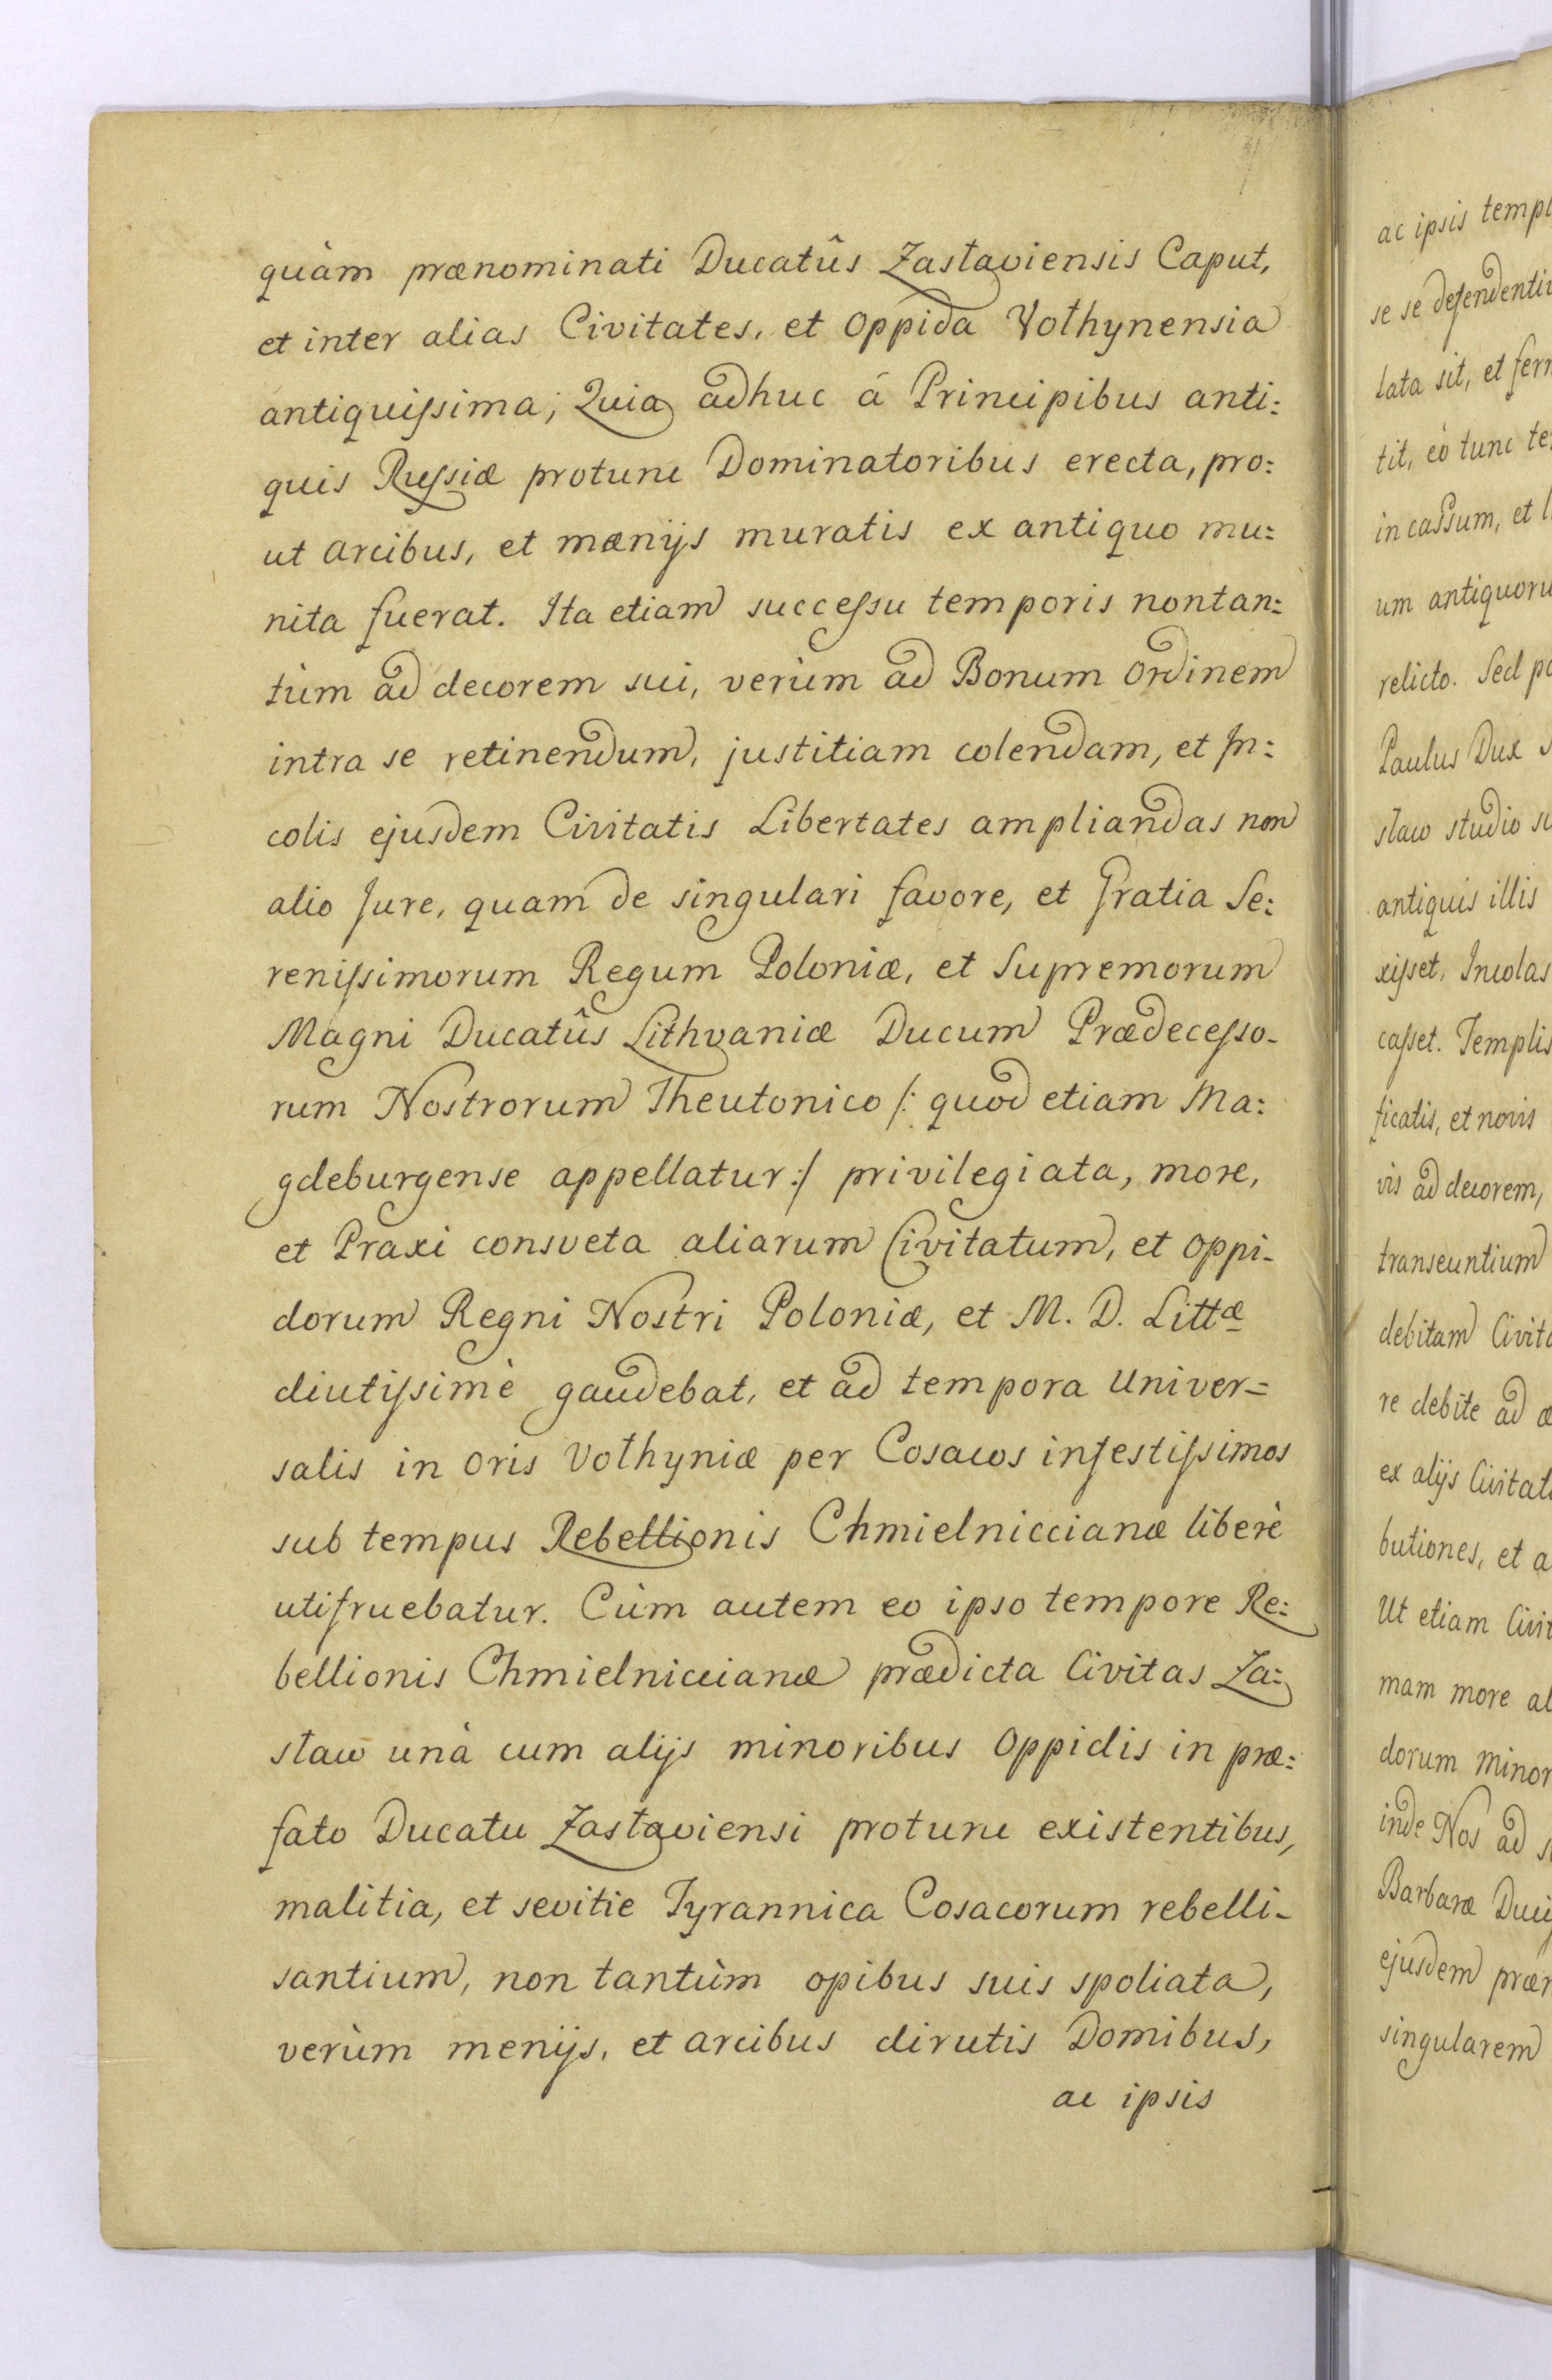 quàm prænominati Ducatûs Zasłaviensis Caput,
et inter alias Civitates, et Oppida Vołhynensia
antiquissima; Quia adhuc á Principibus anti:
quis Russiæ protunc Dominatoribus erecta, pro:
ut arcibus, et mænijs muratis ex antiquo mu:
nita fuerat. Ita etiam successu temporis nontan:
tùm ad decorem sui, verùm ad Bonum Ordinem
intra se retinendum, justitiam colendam, et In:
colis ejusdem Civitatis Libertates ampliandas non
alio Jure, quam de singulari favore, et Gratia Se:
renissimorum Regum Poloniæ, et Supremorum
Magni Ducatûs Lithvaniæ Ducum Prædecesso-
rum Nostrorum Theutonico /: quod etiam Ma:
gdeburgense appellatur :/ privilegiata, more,
et Praxi consveta aliarum Civitatum, et Oppi-
dorum Regni Nostri Poloniæ, et M. D. Littæ
diutissimè gaudebat, et ad tempora Univer=
salis in oris Vołhyniæ per Cosacos infestissimos
sub tempus Rebellionis Chmielniccianæ liberè
utifruebatur. Cùm autem eo ipso tempore Re:
bellionis Chmielniccianæ prædicta Civitas Za:
sław unà cum alijs minoribus Oppidis in præ:
fato Ducatu Zasłaviensi protunc existentibus,
malitia, et sevitie Tyrannica Cosacorum rebelli-
santium, non tantùm opibus suis spoliata,
verùm menijs, et arcibus dirutis Domibus,
ac ipsis
ac ipsis
se se
lata sit, et
tit, eò tunc
in cassum, et
um
relicto. Sed
Paulus Dux
sław studio
antiquis illis
xisset, Incolas
casset. Templis
ficatis, et novis
vis ad decorem,
transeuntium
debitam
re debite ad
ex alijs
butiones, et
Ut etiam
mam more
dorum
inde Nos ad
Barbaræ
ejusdem
singularem